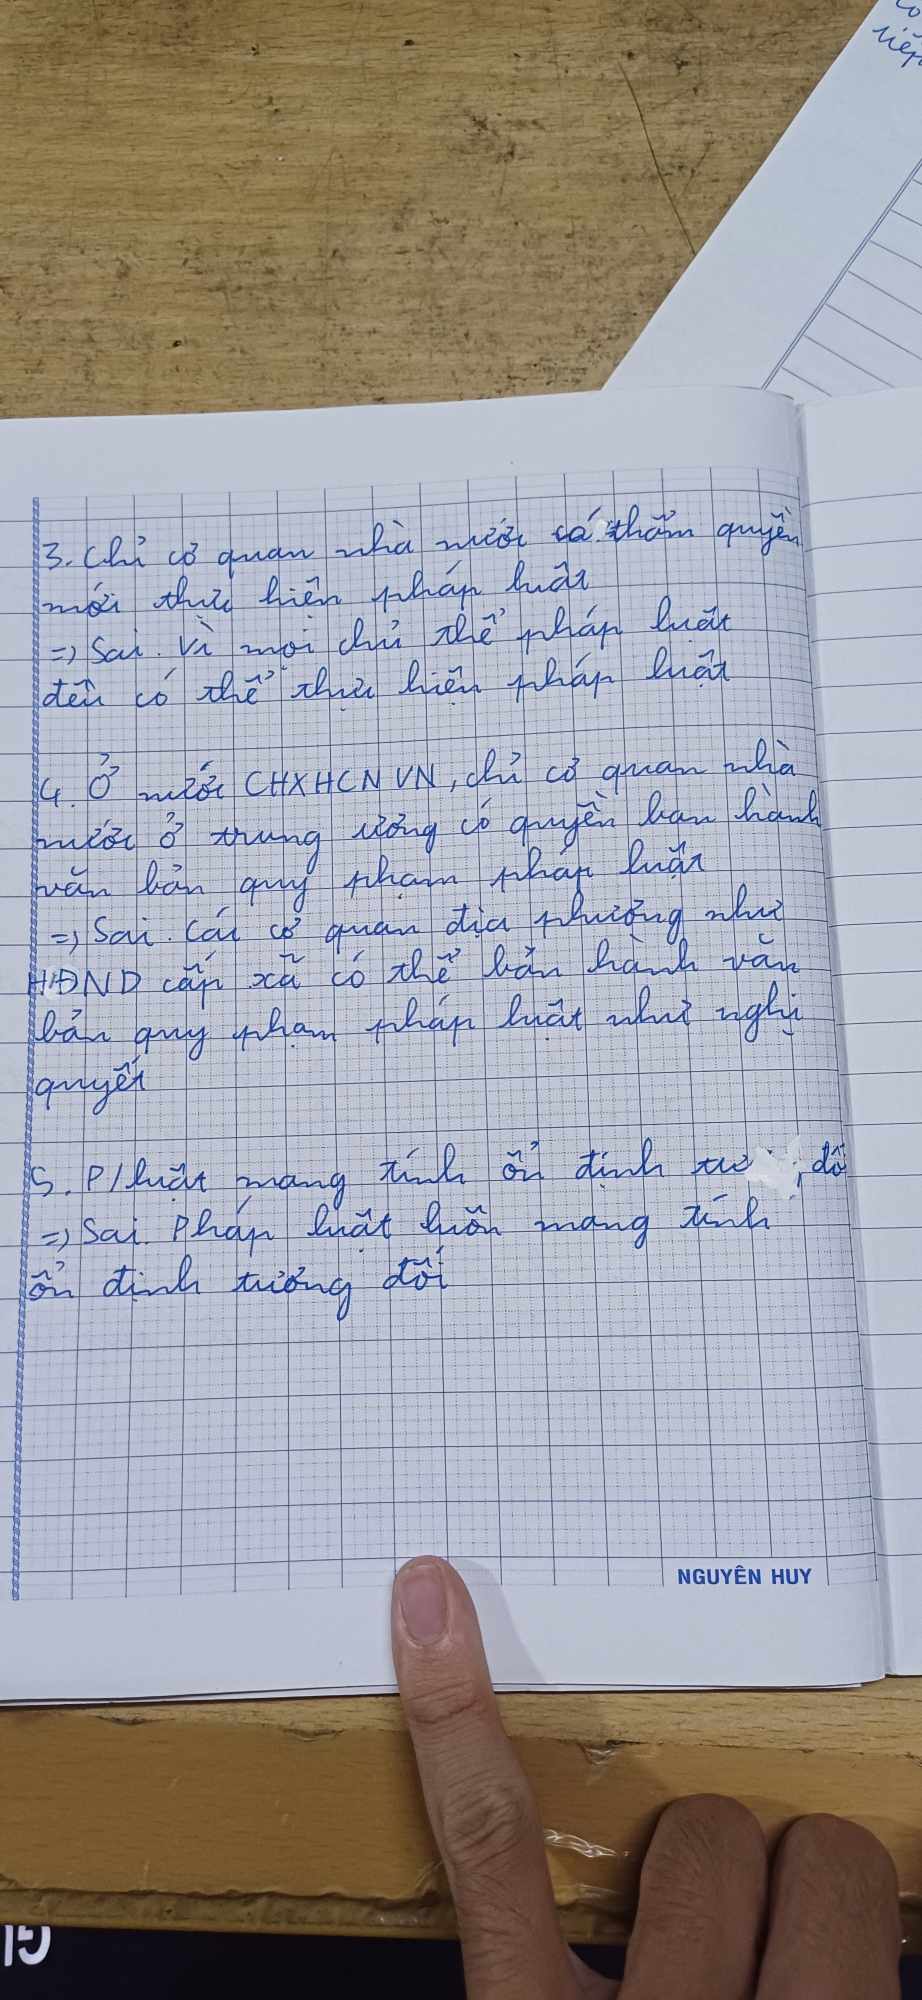 co
tiếp
3. Chỉ cơ quan nhà nước có thẩm quyền
mới thực hiện pháp luật
=) Sai. Vì mọi chủ thể pháp luật
đều có thể thực hiện pháp luật
4. Ở nước CHXHCN VN, chỉ cơ quan nhà
nước ở trung ương có quyền ban hành
văn bản quy phạm pháp luật
=) Sai. Các cơ quan địa phương như
HĐND cấp xã có thể bản hành văn
bản quy phạm pháp luật như nghị
quyết
5. P/luật mang tính ổn định
=) Sai. Pháp luật luôn mang tính
ổn định tương đối
NGUYÊN HUY